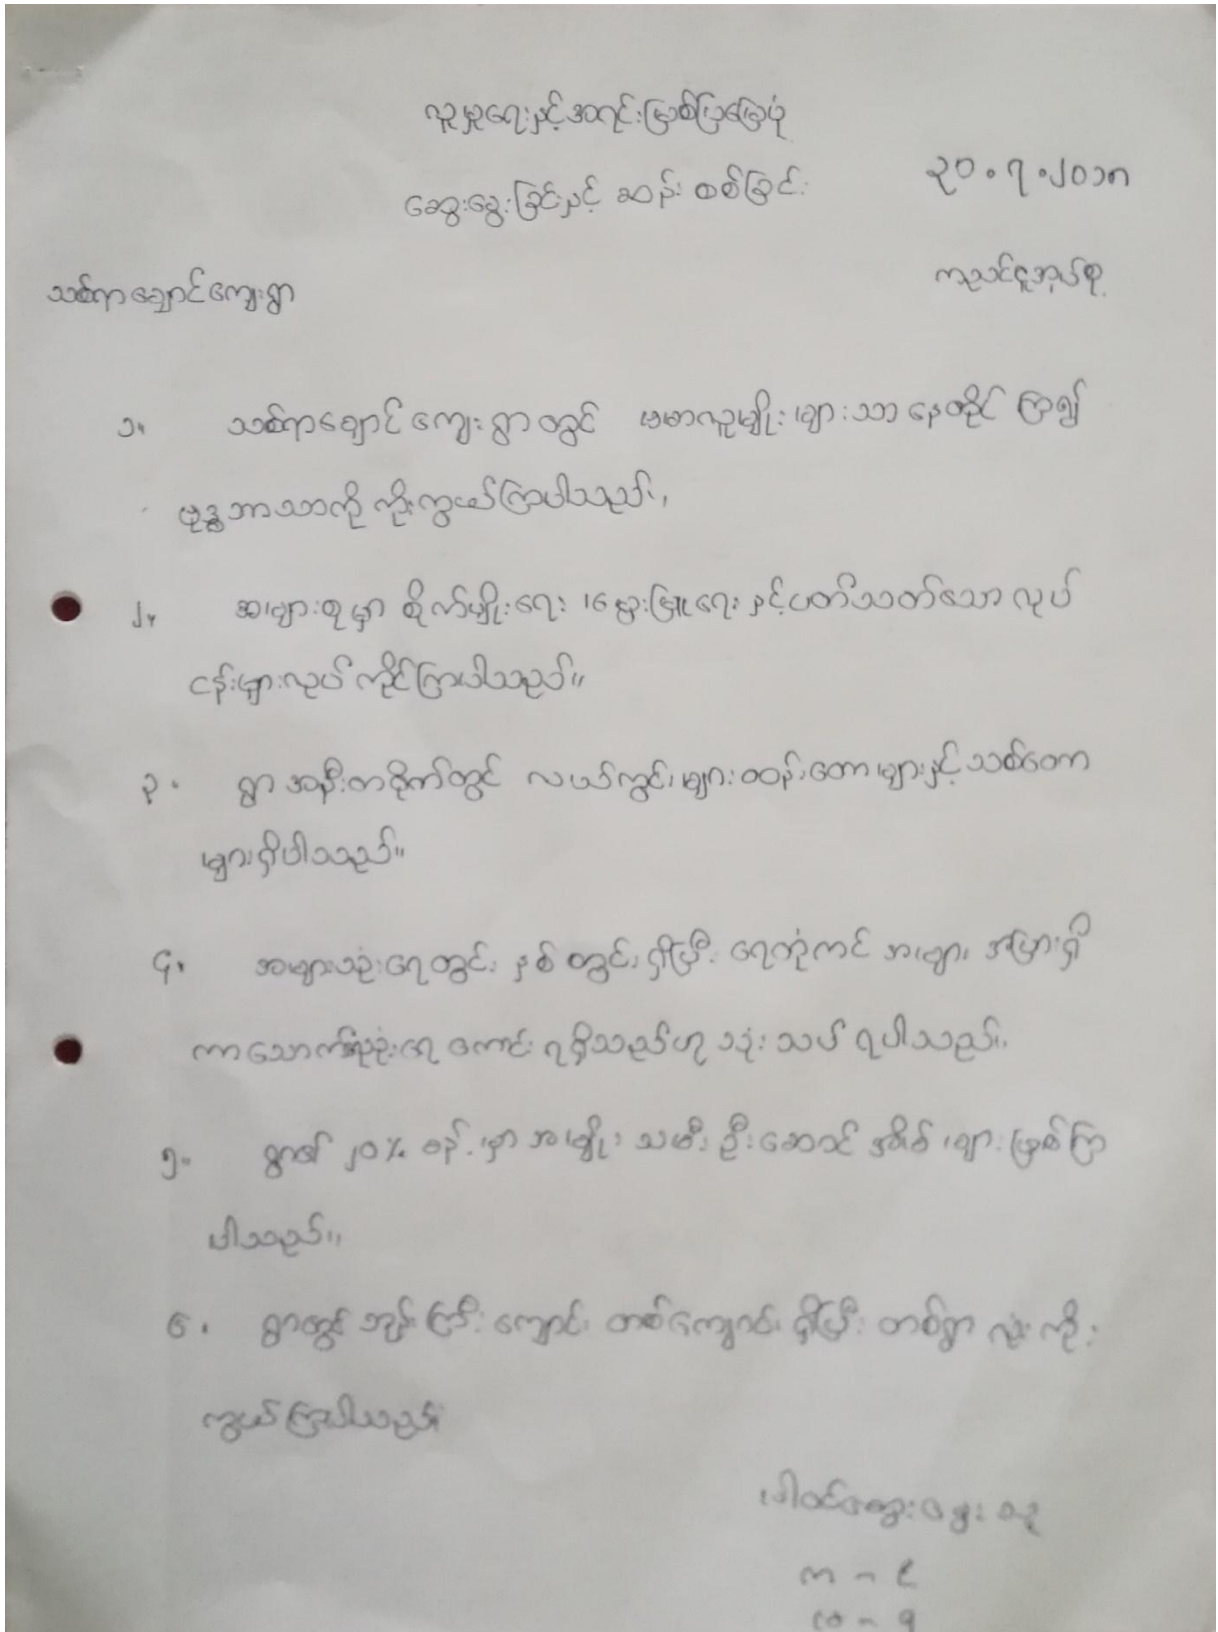 လူမှုရေးနှင့်အရင်းမြစ်ပြမြေပုံ
ဆွေးနွေးခြင်းနှင့် ဆန်းစစ်ခြင်း
၃၀.၇.၂၀၁၈
သစ်ရာချောင်ကျေးရွာ
ကညင်ငူအုပ်စု
၁။ သစ်ရာချောင်ကျေးရွာတွင် ဗမာလူမျိုးများသာ နေထိုင်ကြ၍
ဗုဒ္ဓဘာသာကို ကိုးကွယ်ကြပါသည်။
၂။ အများစုမှာ စိုက်ပျိုးရေး၊ မွေးမြူရေးနှင့်ပတ်သတ်သော လုပ်
ငန်းများလုပ်ကိုင်ကြပါသည်။
၃။ ရွာအနီးတဝိုက်တွင် လယ်ကွင်းများ ဓဝန်းတောများနှင့် သစ်တော
များရှိပါသည်။
၄။ အများသုံးရေတွင်း နှစ်တွင်းရှိပြီး ရေတုံကင် အများအပြားရှိ
ကာသောက်သုံးရေကောင်းရရှိသည်ဟု သုံးသပ်ရပါသည်။
၅။ ရွာ၏ ၂၀% ခန့်မှာ အမျိုးသမီးဦးဆောင် အိမ်များဖြစ်ကြ
ပါသည်။
၆။ ရွာတွင်ဘုန်းကြီးကျောင်း တစ်ကျောင်းရှိပြီး တစ်ရွာလုံးကိုး
ကွယ်ကြပါသည်။
ပါဝင်ဆွေးနွေးသူ